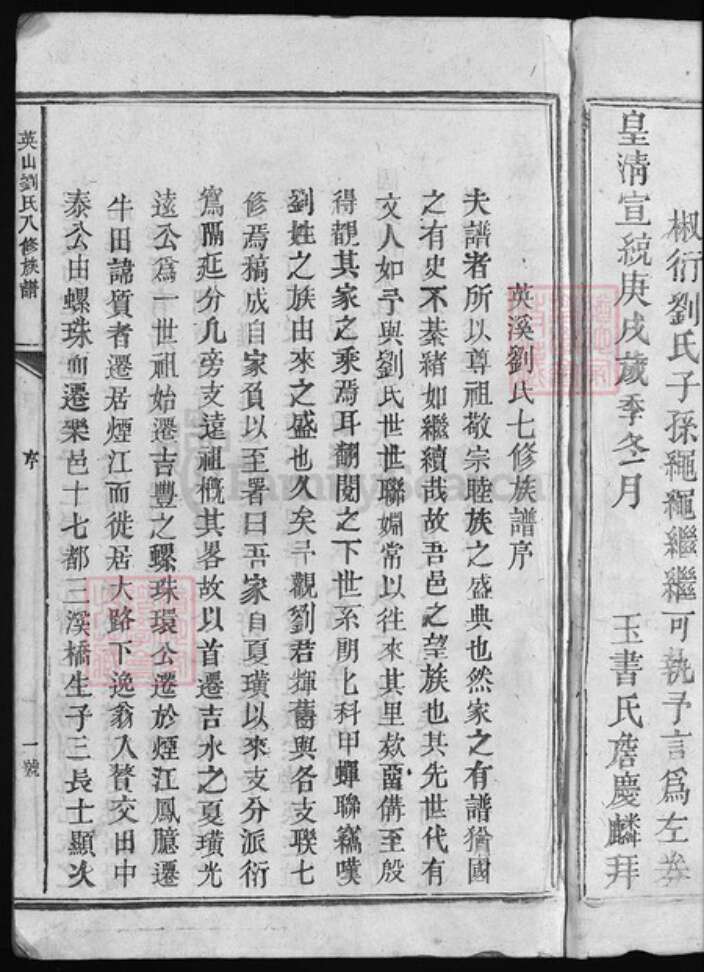 椒衍劉氏子孫繩繩繼繼可執予言爲左券
皇清宣統庚戌歲季冬月　玉書氏詹慶麟拜
英溪劉氏七修族譜序
夫譜者所以尊祖敬宗睦族之盛典也然家之有譜猶國
之有史不綦緒如繼續哉故吾邑之望族也其先世代有
文人如予與劉氏世世聯婣常以往來其里欵畱僃至殷
得覩其家之乘焉耳翻閱之下世系朗匕科甲蟬聯竊嘆
劉姓之族由來之盛也久矣予觀劉君輝舊與各支聯七
修焉稿成自家負以至署曰吾家自夏璜以來支分派衍
窵隔延分几旁支遠祖概其畧故以首遷吉水之夏璜光
遠公爲一世祖始遷吉豐之螺珠環公遷於煙江鳳臆遷
牛田諱質者遷居煙江而徙居大路下逸翁入贅交田中
泰公由螺珠而遷樂邑十七都三溪橋生子三長士顯次
英山劉氏八修族譜
序
一號
FamilySearch